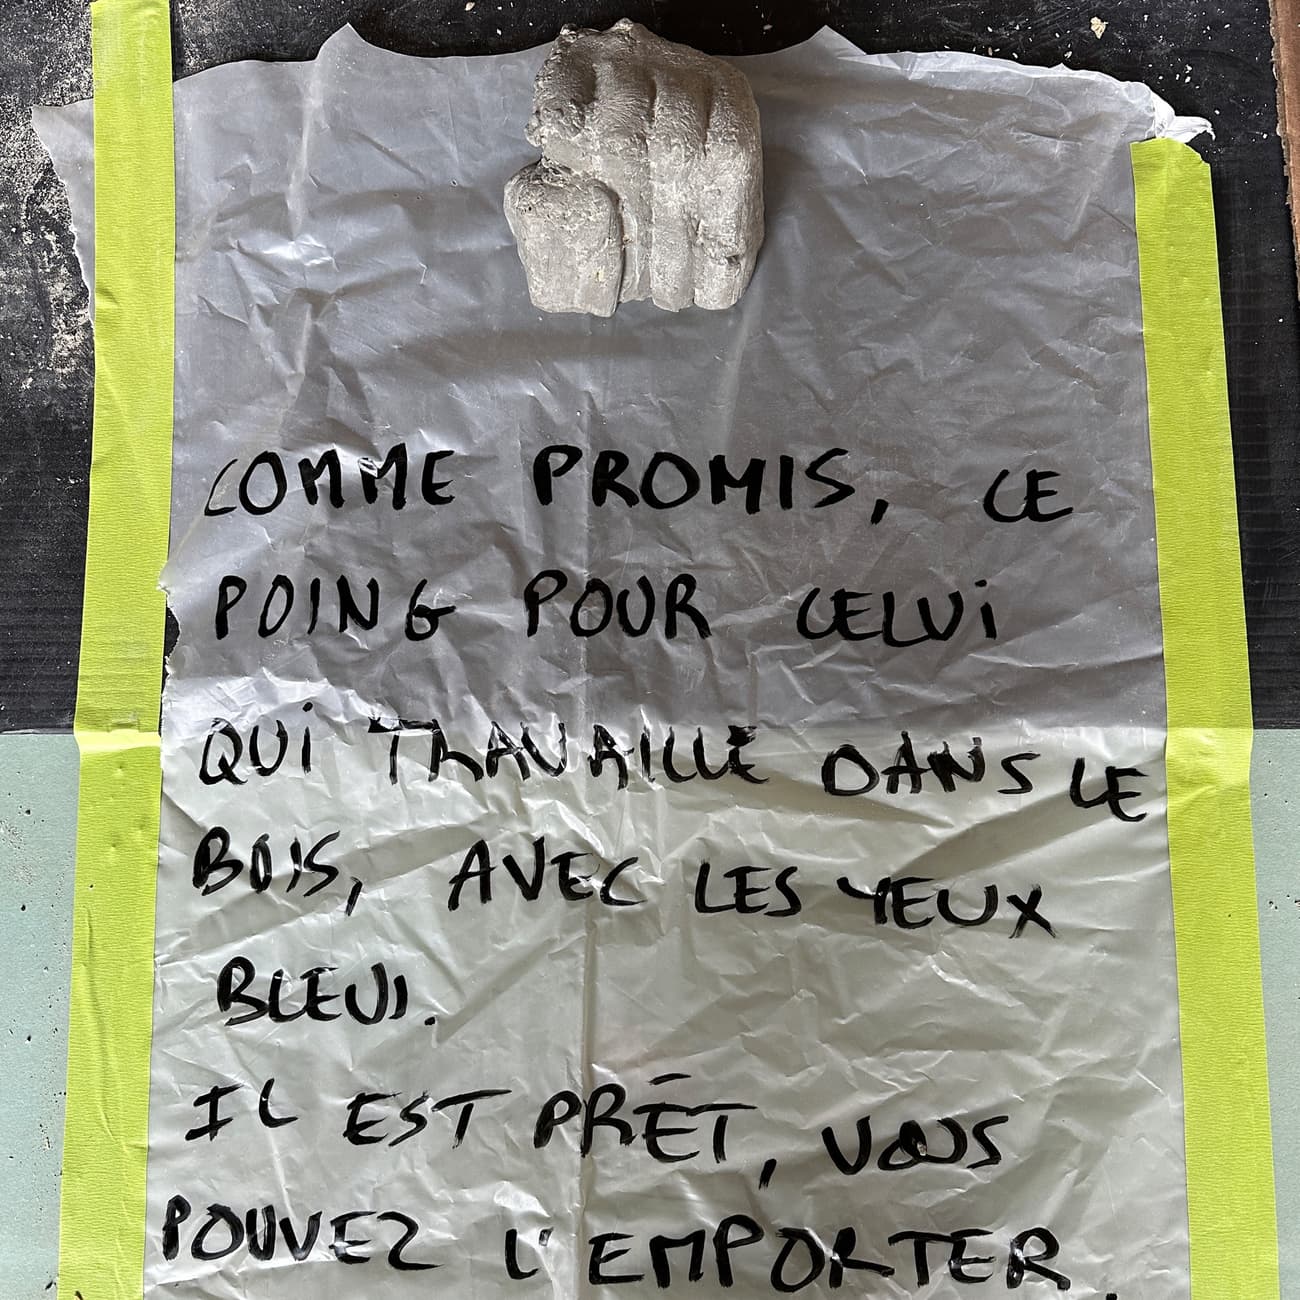 COMME PROMIS, CE
POING POUR CELUI
QUI TRAVAILLE DANS LE
BOIS, AVEC LES YEUX
BLEUS.
IL EST PRÊT, VOUS
POUVEZ L'EMPORTER.